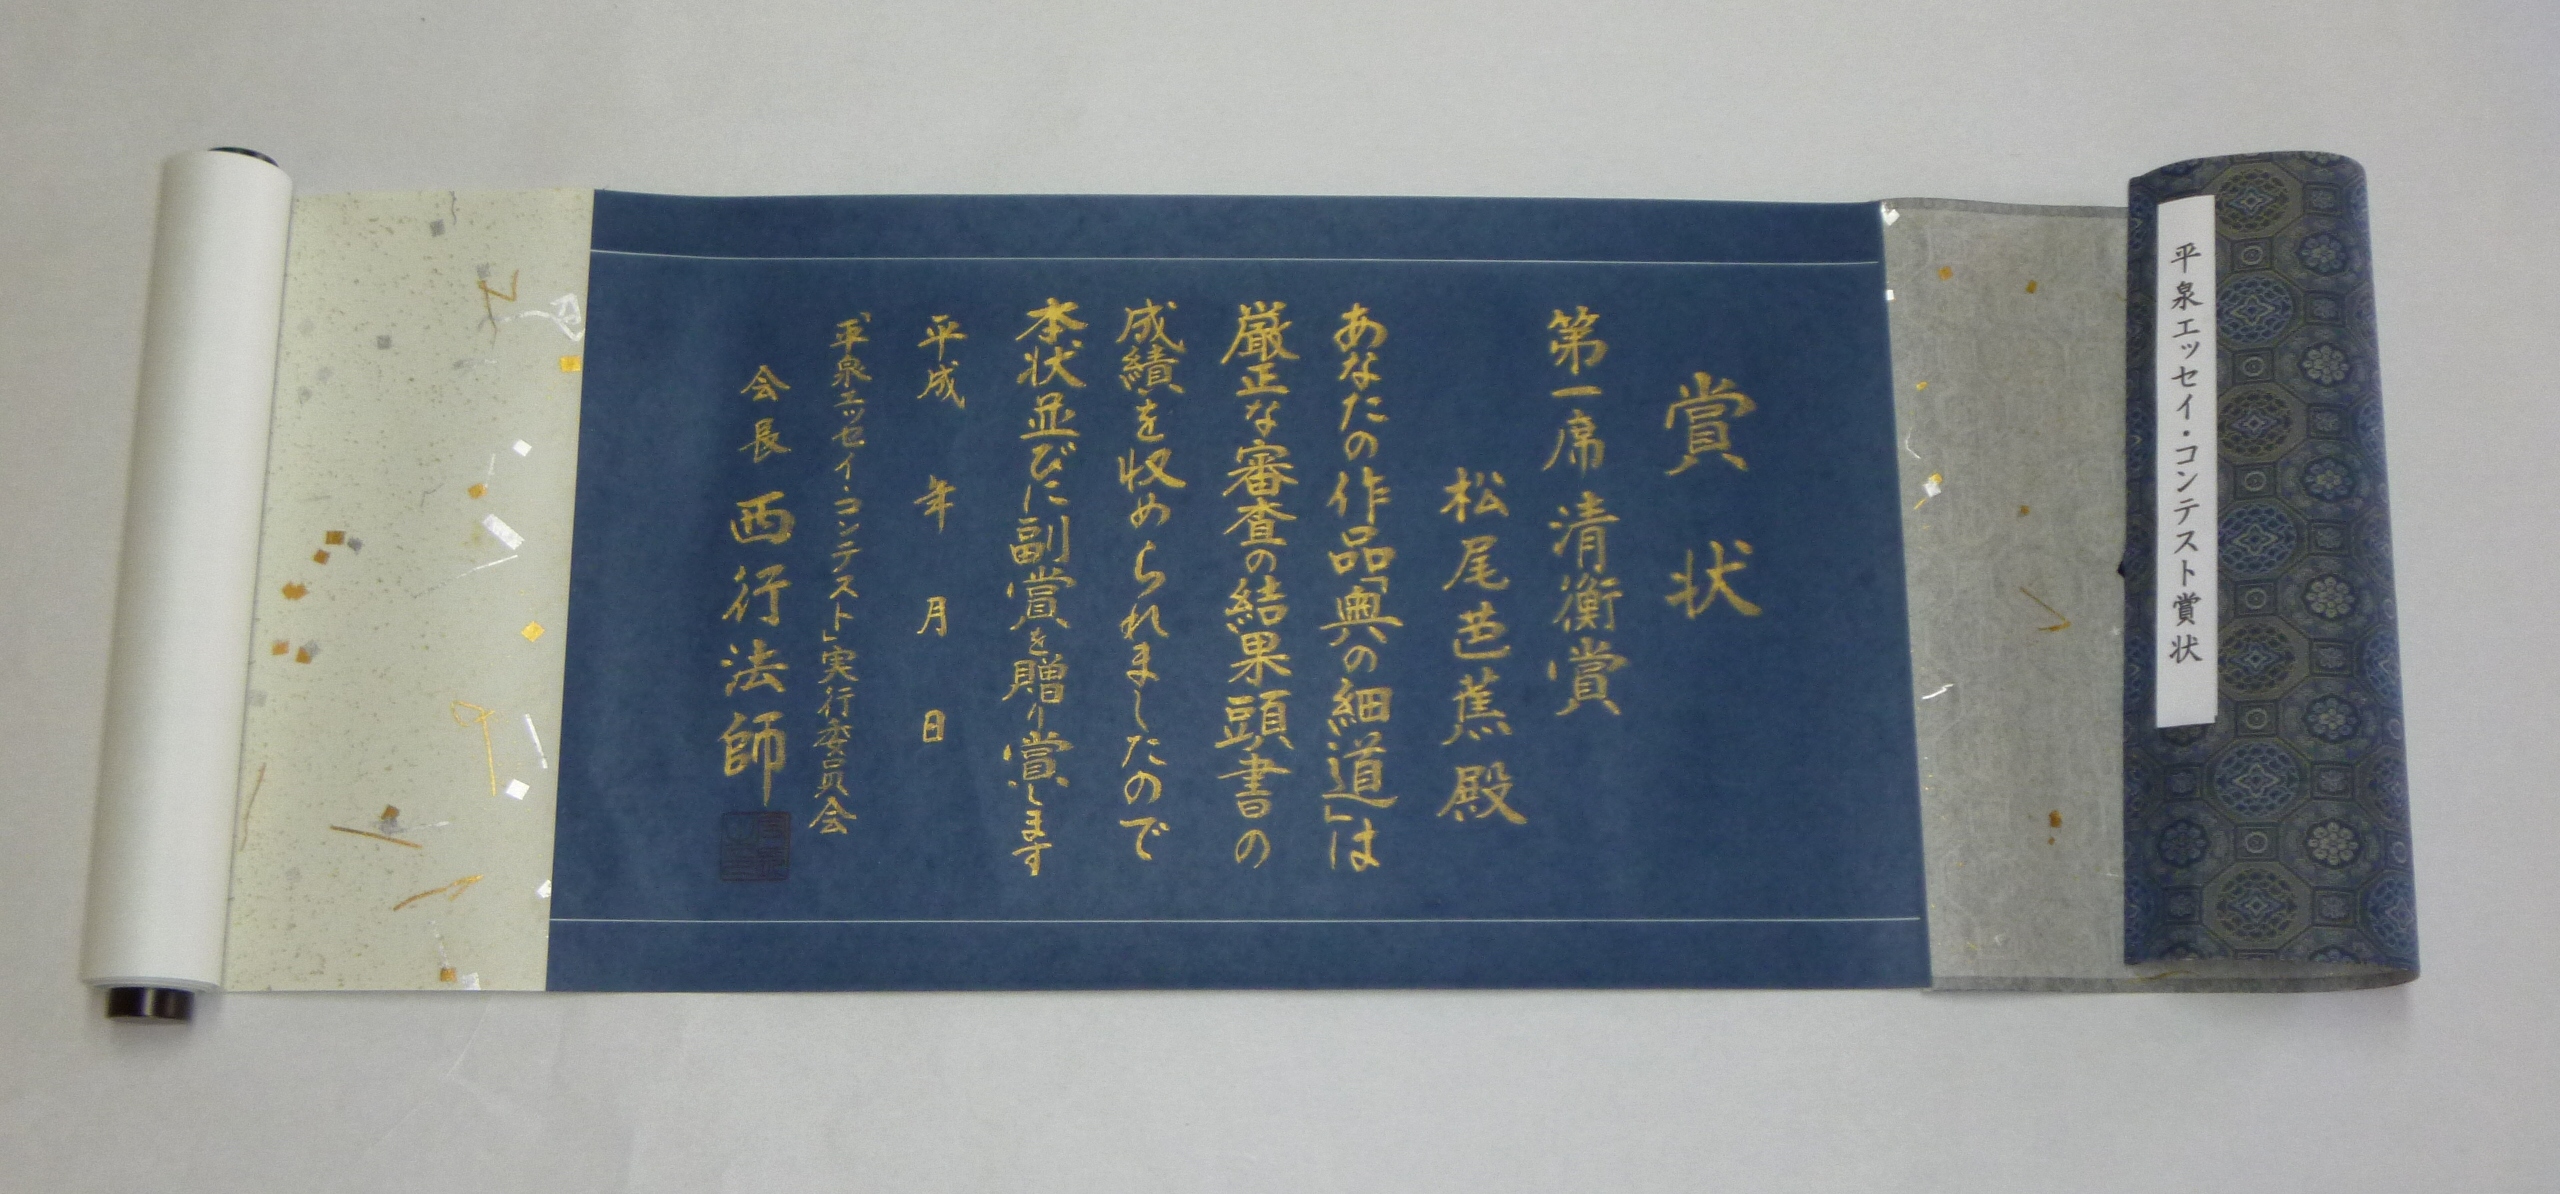 平泉エッセイ・コンテスト賞状
賞状
第一席 清衡賞
松尾芭蕉殿
あなたの作品「奥の細道」は
厳正な審査の結果頭書の
成績を収められましたので
本状並びに副賞を贈り賞します
平成 年 月 日
「平泉エッセイ・コンテスト」実行委員会
会長 西行法師